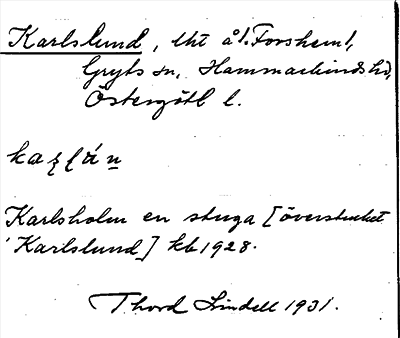 Karlslund, lht å l. Forshem l,
Gryts sn, Hammarkinds hd,
Östergötl l.
Karlsholm en stuga [överstruket
Karlslund] kb 1928.
Thord Lindell 1931.